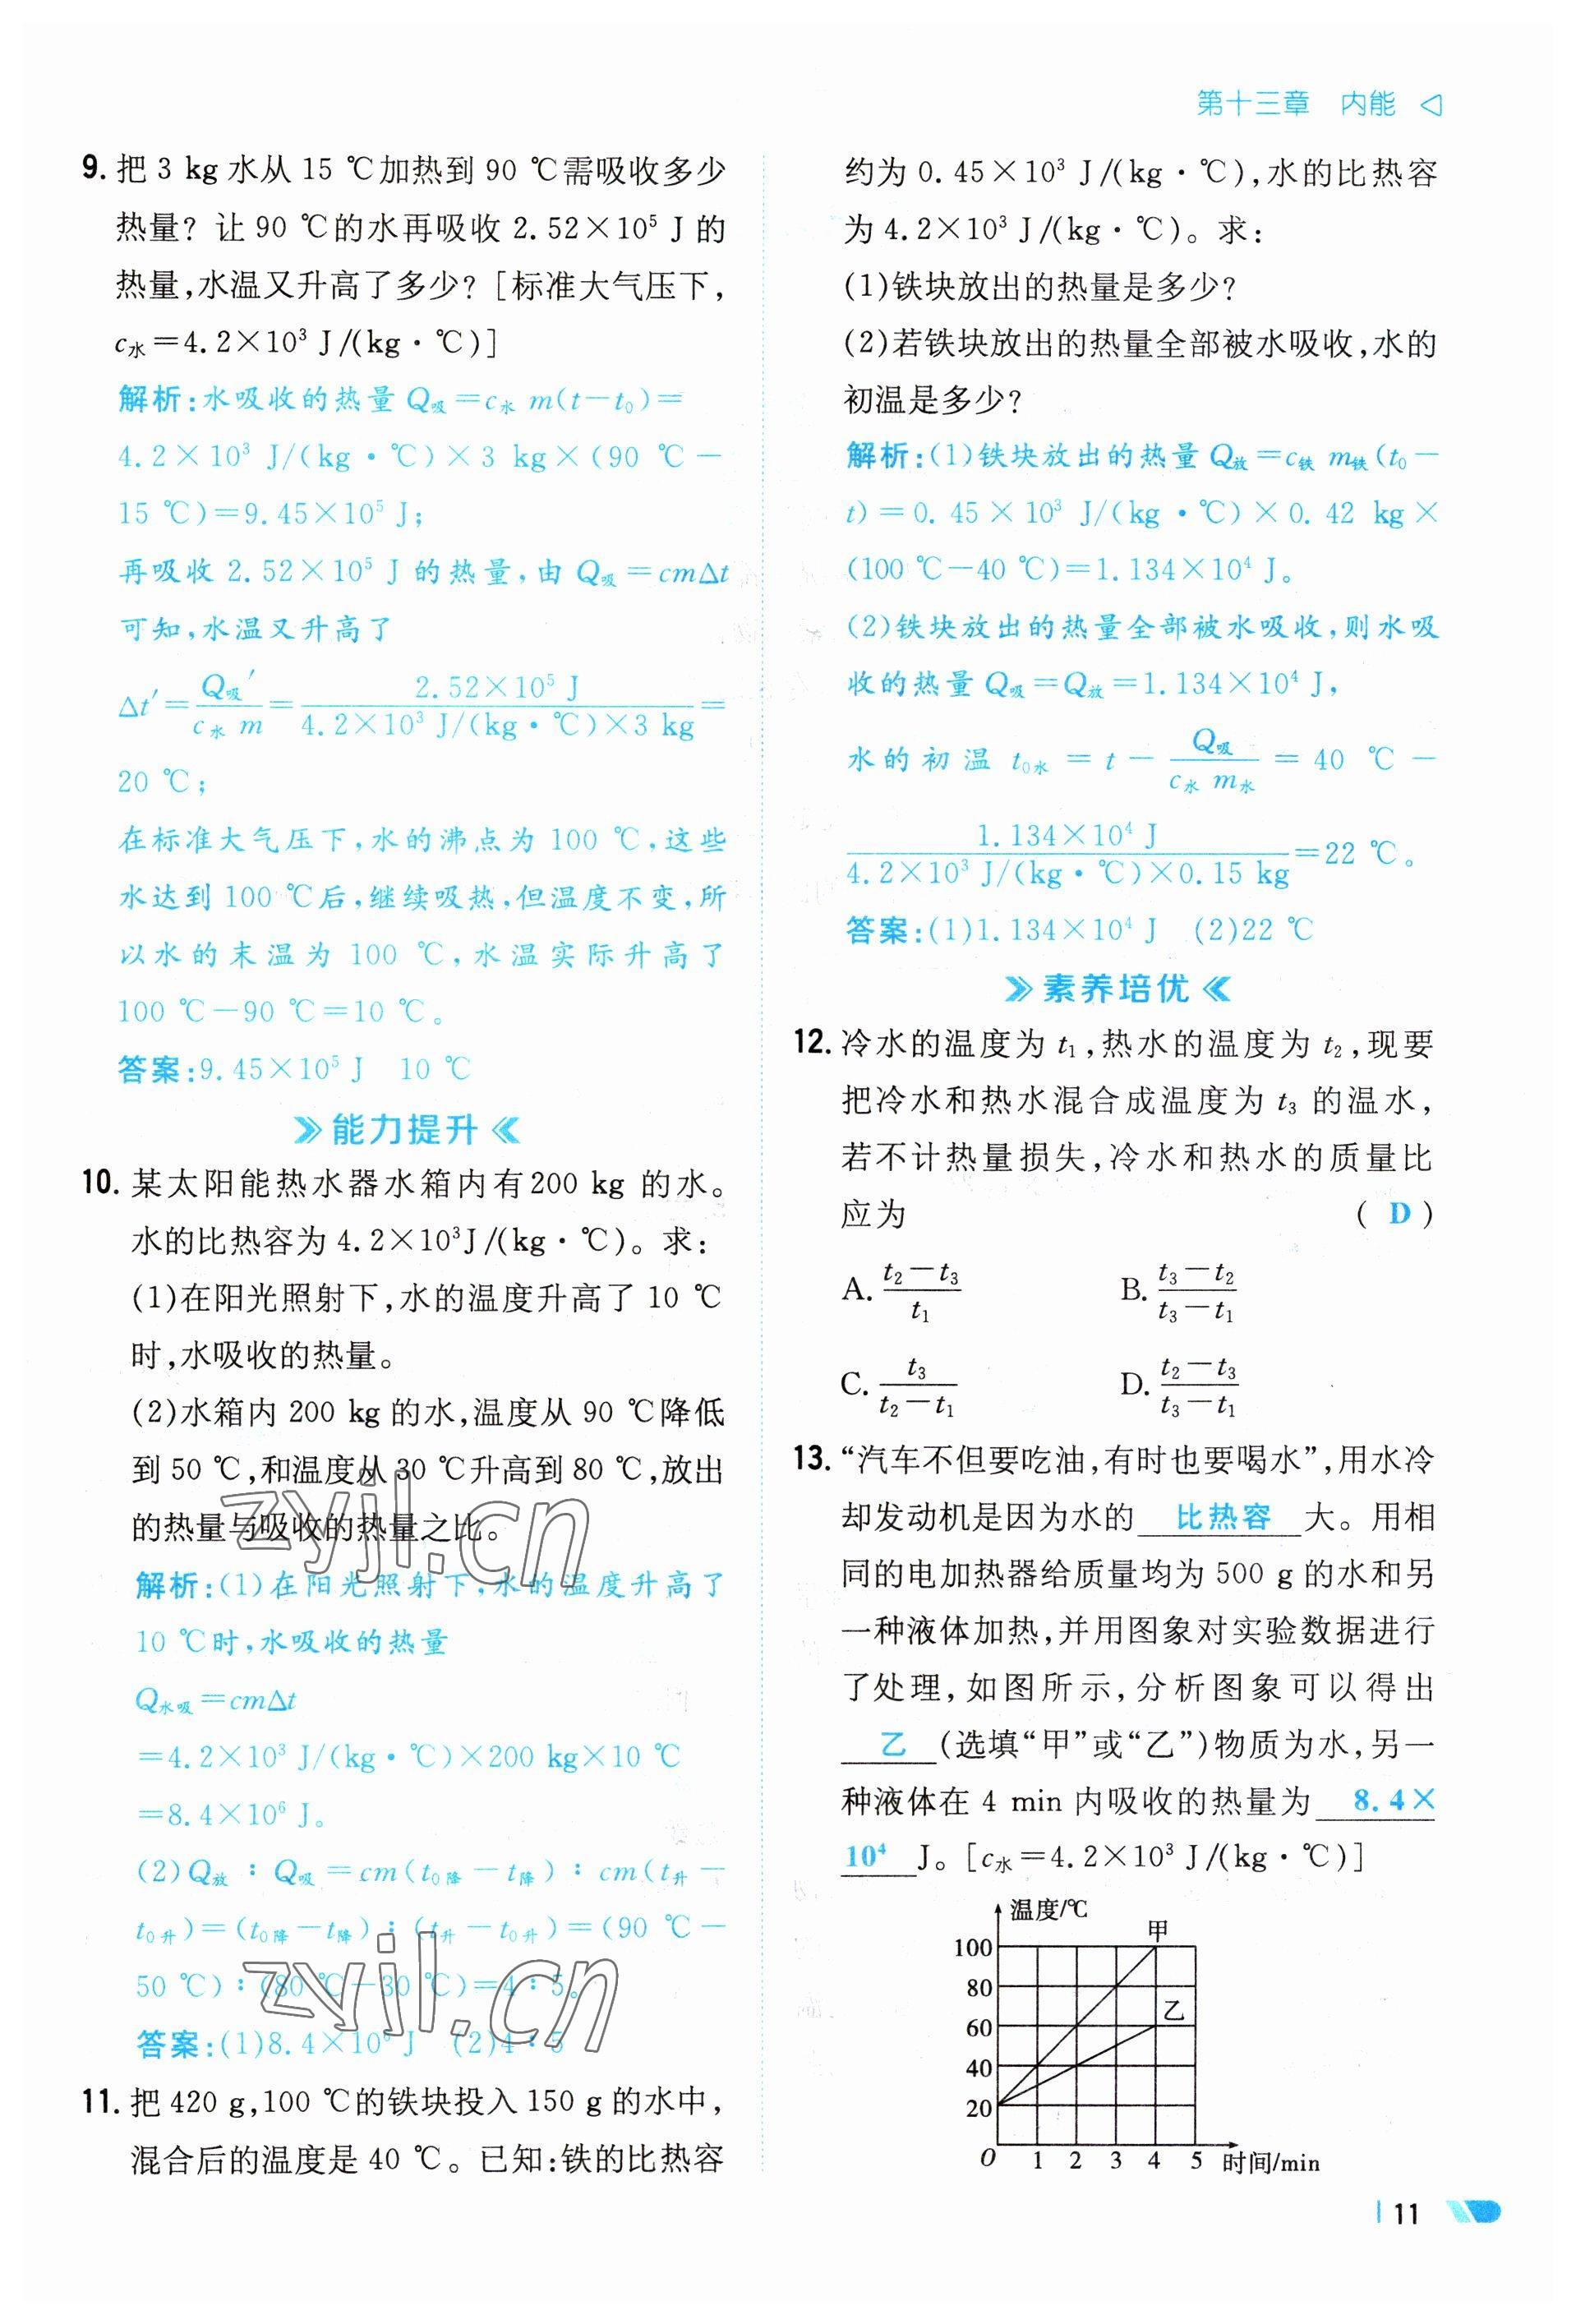 第十三章 内能
9. 把 3 kg 水从 15 ℃加热到 90 ℃需吸收多少
热量？让 90 ℃的水再吸收 2.52×10⁵ J 的
热量,水温又升高了多少？[标准大气压下,
c水=4.2×10³ J/(kg·℃)]
解析:水吸收的热量 Q吸=c水 m(t-t₀)=
4.2×10³ J/(kg·℃)×3 kg×(90 ℃-
15 ℃)=9.45×10⁵ J;
再吸收 2.52×10⁵ J 的热量,由 Q吸=cmΔt
可知,水温又升高了
Δt′=Q吸′/(c水 m)=2.52×10⁵ J/(4.2×10³ J/(kg·℃)×3 kg)=
20 ℃;
在标准大气压下,水的沸点为 100 ℃,这些
水达到 100 ℃后,继续吸热,但温度不变,所
以水的末温为 100 ℃,水温实际升高了
100 ℃-90 ℃=10 ℃。
答案:9.45×10⁵ J 10 ℃
能力提升
10. 某太阳能热水器水箱内有200 kg 的水。
水的比热容为 4.2×10³J/(kg·℃)。求:
(1)在阳光照射下,水的温度升高了 10 ℃
时,水吸收的热量。
(2)水箱内 200 kg 的水,温度从 90 ℃降低
到 50 ℃,和温度从 30 ℃升高到 80 ℃,放出
的热量与吸收的热量之比。
zyjl.cn
解析:(1)在阳光照射下,水的温度升高了
10 ℃时,水吸收的热量
Q水吸=cmΔt
=4.2×10³ J/(kg·℃)×200 kg×10 ℃
=8.4×10⁶ J。
(2)Q放∶Q吸=cm(t₀降-t降)∶cm(t升-
t₀升)=(t₀降-t降)∶(t升-t₀升)=(90 ℃-
50 ℃)∶(80 ℃-30 ℃)=4∶5。
zyjl.cn
答案:(1)8.4×10⁶ J (2)4∶5
11. 把 420 g,100 ℃的铁块投入 150 g 的水中,
混合后的温度是 40 ℃。已知:铁的比热容
约为 0.45×10³ J/(kg·℃),水的比热容
为 4.2×10³ J/(kg·℃)。求:
(1)铁块放出的热量是多少？
(2)若铁块放出的热量全部被水吸收,水的
初温是多少？
解析:(1)铁块放出的热量 Q放=c铁 m铁(t₀-
t)=0.45×10³ J/(kg·℃)×0.42 kg×
(100 ℃-40 ℃)=1.134×10⁴ J。
(2)铁块放出的热量全部被水吸收,则水吸
收的热量 Q吸=Q放=1.134×10⁴ J,
水的初温 t₀水=t-Q吸/(c水 m水)=40 ℃-
1.134×10⁴ J/(4.2×10³ J/(kg·℃)×0.15 kg)=22 ℃。
答案:(1)1.134×10⁴ J (2)22 ℃
素养培优
12. 冷水的温度为 t₁,热水的温度为 t₂,现要
把冷水和热水混合成温度为 t₃ 的温水,
若不计热量损失,冷水和热水的质量比
应为 ( D )
A. (t₂-t₃)/t₁ B. (t₃-t₂)/(t₃-t₁)
C. t₃/(t₂-t₁) D. (t₂-t₃)/(t₃-t₁)
13. “汽车不但要吃油,有时也要喝水”,用水冷
却发动机是因为水的 比热容 大。用相
同的电加热器给质量均为 500 g 的水和另
一种液体加热,并用图象对实验数据进行
了处理,如图所示,分析图象可以得出
乙 (选填“甲”或“乙”)物质为水,另一
种液体在 4 min 内吸收的热量为 8.4×
10⁴ J。[c水=4.2×10³ J/(kg·℃)]
温度/℃
甲
100
80
乙
60
40
20
O 1 2 3 4 5 时间/min
11